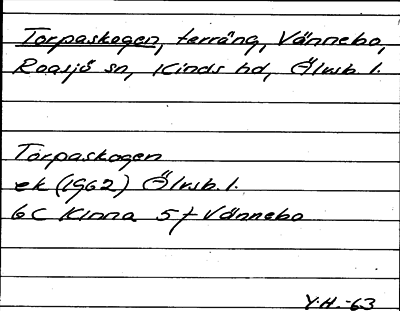 Torpaskogen, terräng, Vännebo,
Roasjö sn, Kinds hd, Älvsb. l.
Torpaskogen
ek (1962) Älvsb. l.
6C Kinna 5f Vännebo
Y.H.-63